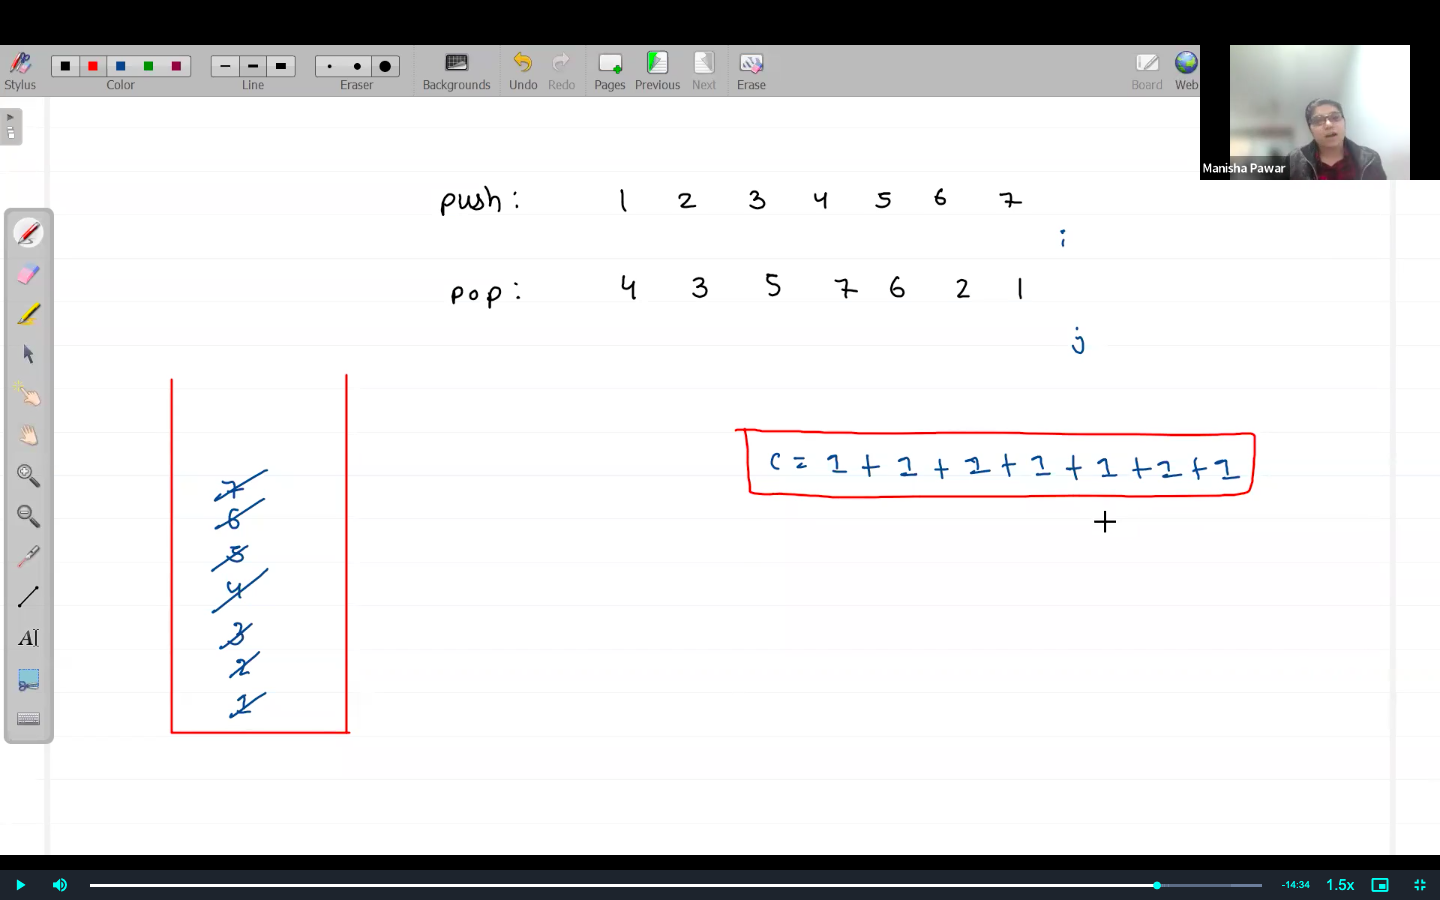 Stylus
Color
Line
Eraser
Backgrounds
Undo
Redo
Pages
Previous
Next
Erase
Board
Web
Manisha Pawar
push: 1 2 3 4 5 6 7
i
pop: 4 3 5 7 6 2 1
j
c = 1 + 1 + 1 + 1 + 1 + 1 + 1
7
6
5
4
3
2
1
A
-14:34
1.5x